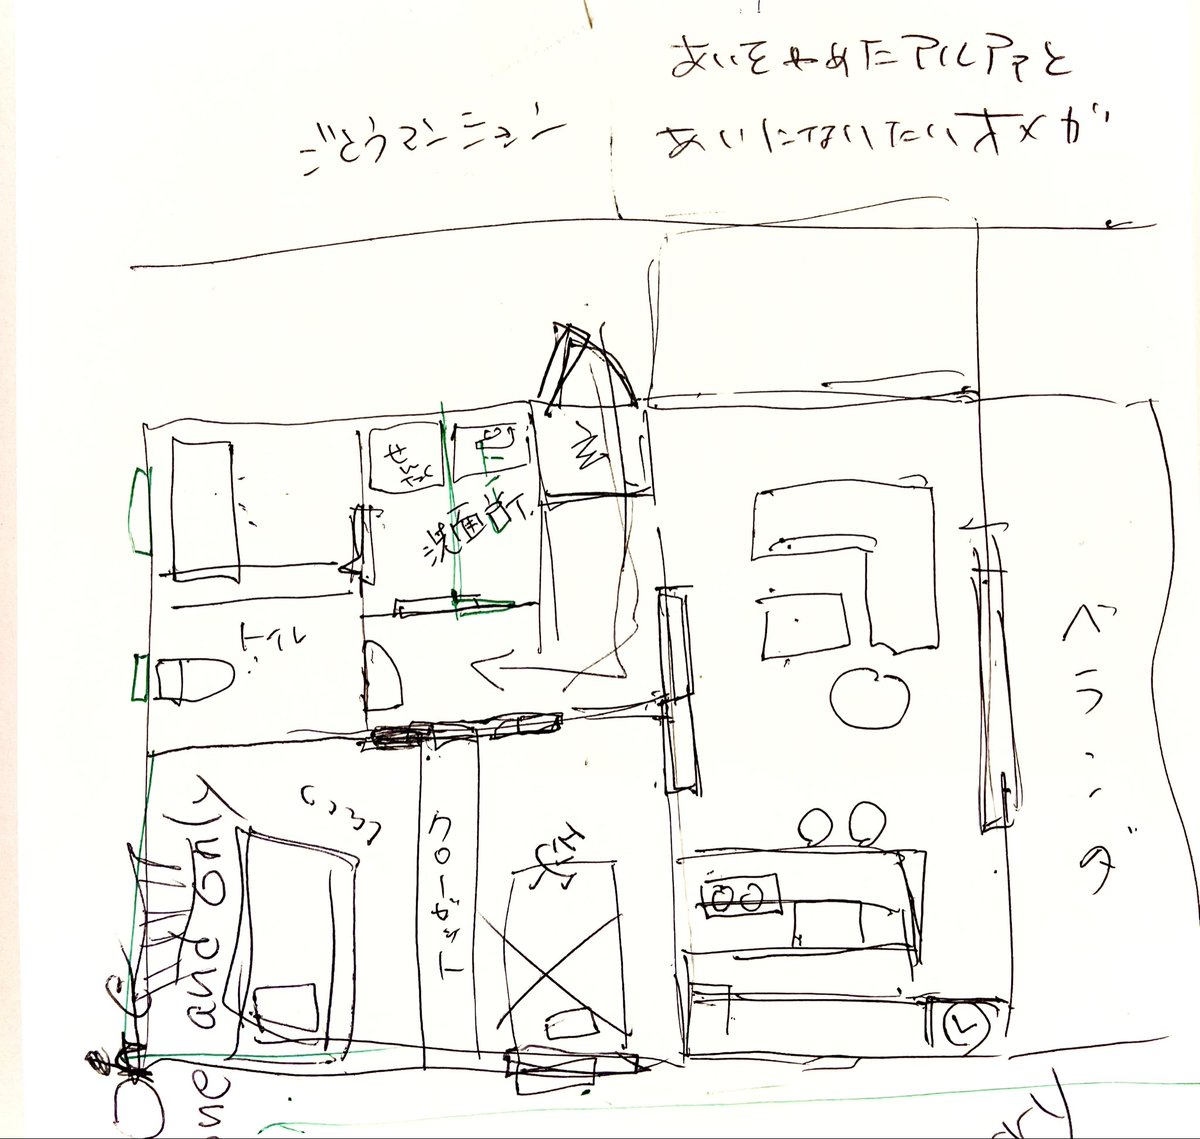 あいをやめたアルファと
あいにないたいオメガ
ごとうマンション
せんたく
洗面所
トイレ
ベランダ
クローゼット
and Only